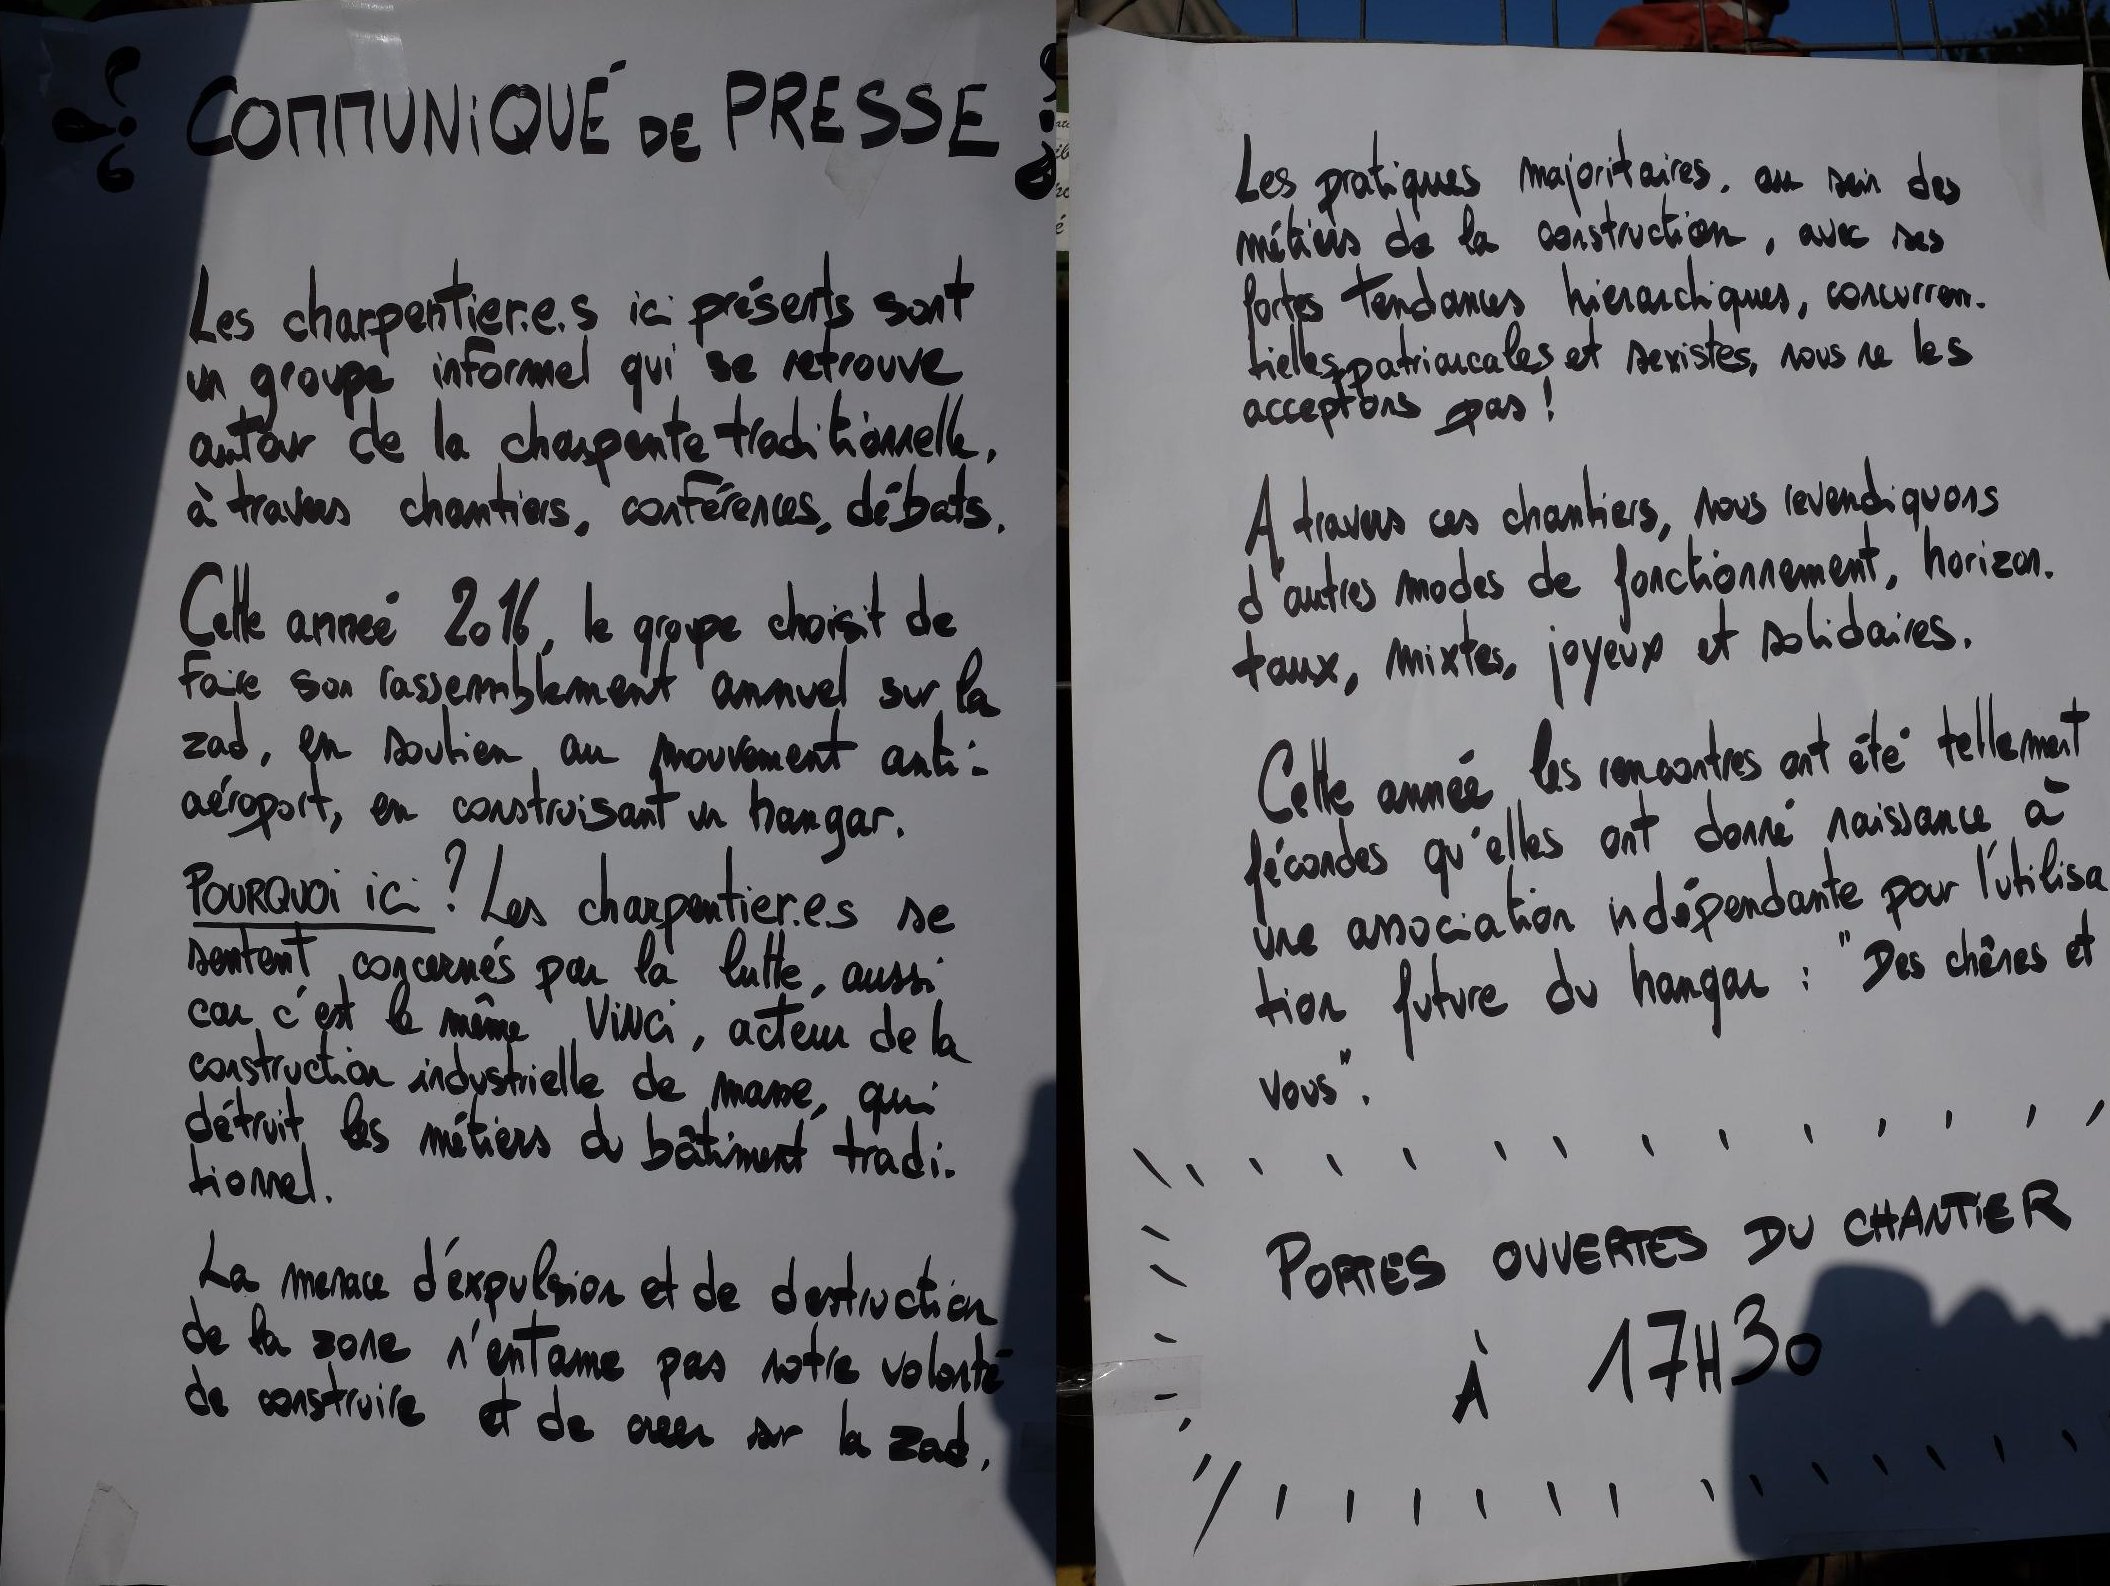 COMMUNiQUÉ DE PRESSE
Les charpentier.e.s ici présents sont
un groupe informel qui se retrouve
autour de la charpente traditionnelle,
à travers chantiers, conférences, débats.
Cette année 2016, le groupe choisit de
faire son rassemblement annuel sur la
zad, en soutien au mouvement anti-
aéroport, en construisant un hangar.
POURQUOi ici ? Les charpentier.e.s se
sentent concernés par la lutte, aussi
car c'est le même Vinci, acteur de la
construction industrielle de masse, qui
détruit les métiers du bâtiment tradi-
tionnel.
La menace d'expulsion et de destruction
de la zone n'entame pas notre volonté
de construire et de creer sur la zad.
Les pratiques majoritaires, au sein des
métiers de la construction, avec ses
fortes tendances hierarchiques, concurren-
tielles, patriarcales et sexistes, nous ne les
acceptons pas !
A travers ces chantiers, nous revendiquons
d'autres modes de fonctionnement, horizon-
taux, mixtes, joyeux et solidaires.
Cette année les rencontres ont été tellement
fécondes qu'elles ont donné naissance à
une association indépendante pour l'utilisa
tion future du hangar : "Des chênes et
vous".
PORTES OUVERTES DU CHANTiER
À 17H30